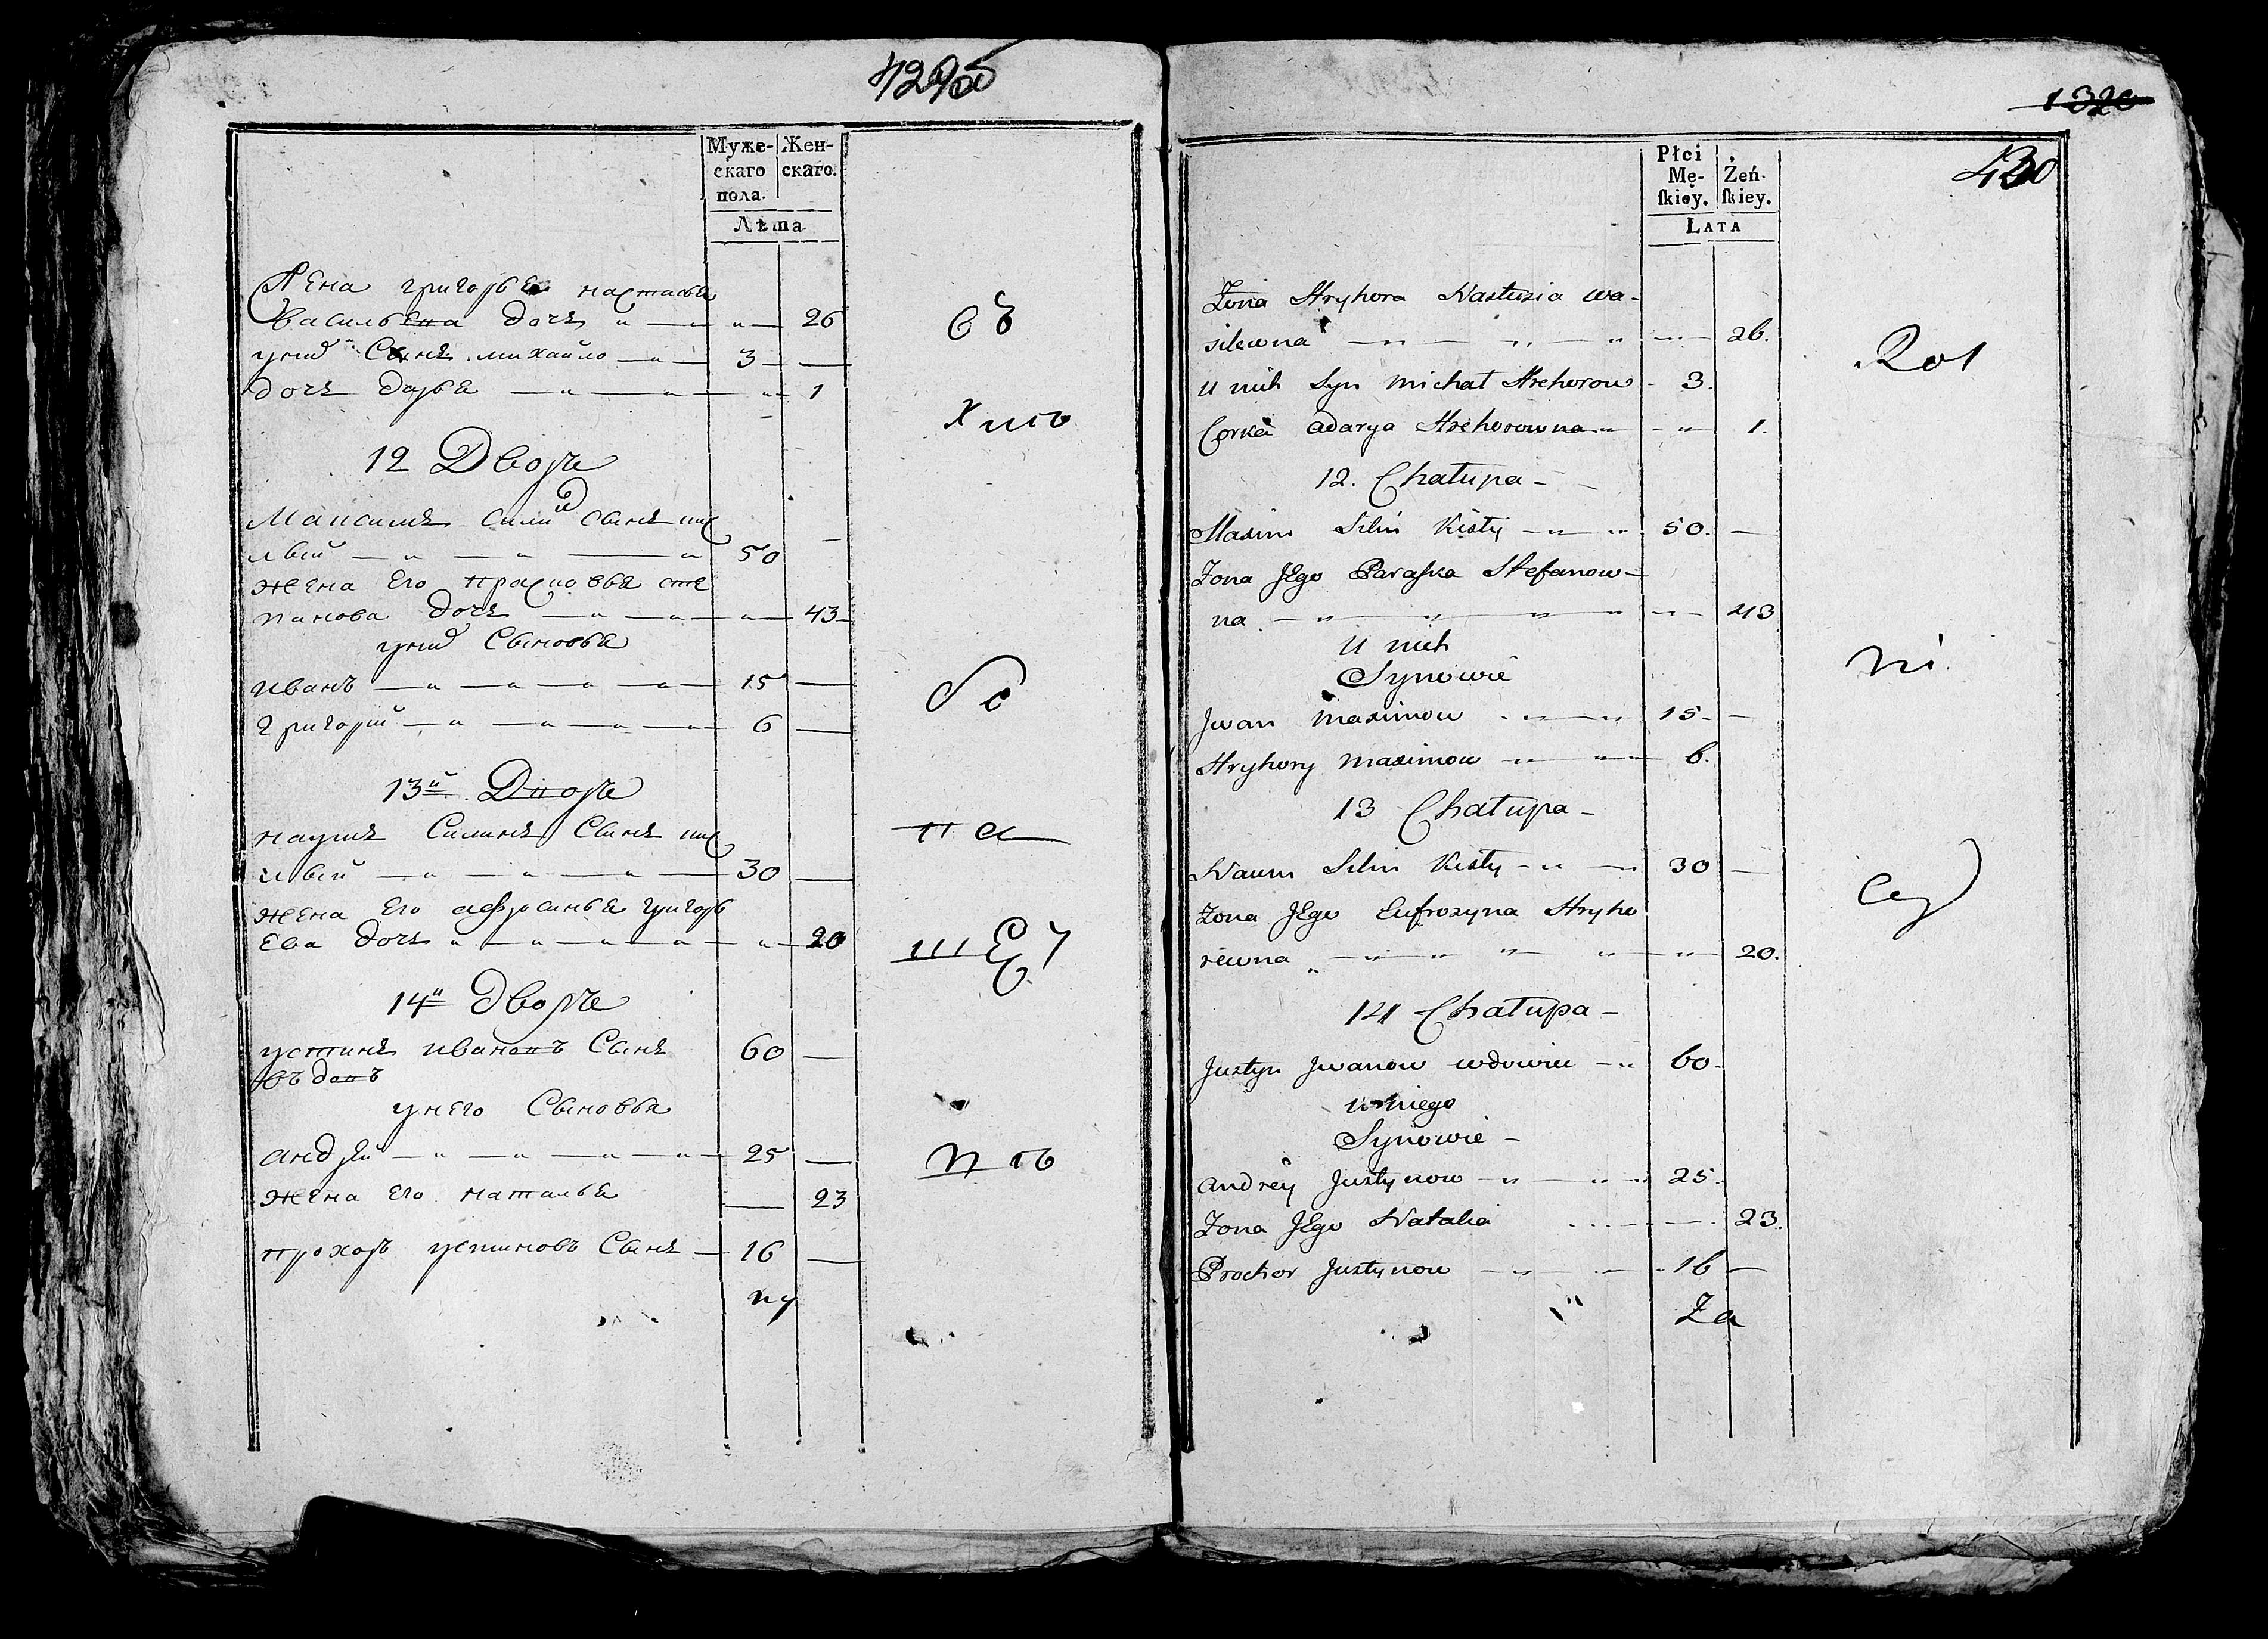 429об
Муже-
скаго
пола.
Жен-
скаго.
Лѣта
Жена григорьева настасья
васильева дочь 26
у них Сынъ михайло 3
дочь дарья 1
12 Дворъ
Максимъ силин сынъ кис
лый 50
жена Его прасковья сте
панова дочь 43
у них Сыновья
иванъ 15
григорий 6
13й Дворъ
наумъ Силинъ Сынъ кис
лый 30
жена Его афросинья григорь
Ева дочь 20
14й дворъ
устинъ ивановъ Сынъ 60
вдовъ
у него Сыновья
андрей 25
жена Его наталья 23
прохоръ устиновъ Сынъ 16
къ
хмъ
на
1320
430
Płci
Mę-
ſkiey.
Żeń-
ſkiey.
LATA
Żona Hryhora Nastuzia wa-
silewna 26.
U nich Syn michał Hrehorow 3.
Corka adarya Hrehorowna 1.
12. Chałupa
Maxim Silin Kisły 50.
Żona JEgo Paraſka Stefanow-
na 43
U nich
Synowie
Jwan maximow 15
Hryhory maximow 6.
13 Chałupa
Naum Silin Kisły 30
Żona JEgo Eufrozyna Hryho
rewna 20.
14 Chałupa
Justyn Jwanow wdowiec 60
u niego
Synowie
andrey Justynow 25.
Żona JEgo Natalia 23.
Prochor Justynow 16
Za
Rot
ni